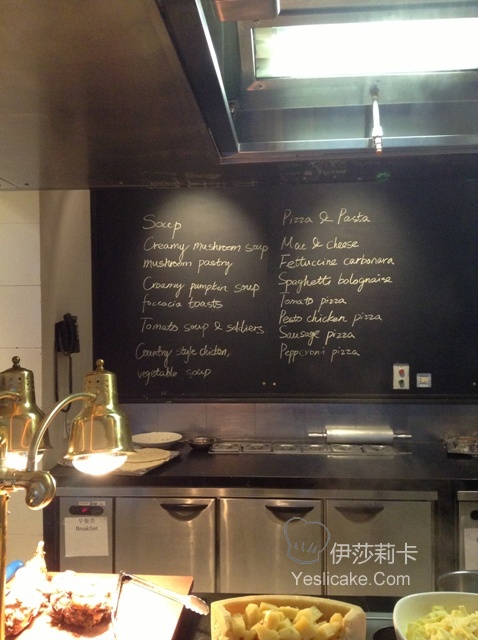 Soup
Creamy mushroom soup
mushroom pastry
Creamy pumpkin soup
foccacia toasts
Tomato soup & soldiers
Country style chicken,
vegetable soup
Pizza & Pasta
Mac & cheese
Fettuccine carbonara
Spaghetti bolognaise
Tomato pizza
Pesto chicken pizza
Sausage pizza
Pepperoni pizza
早餐类
Breakfast
伊莎莉卡
Yeslicake.Com